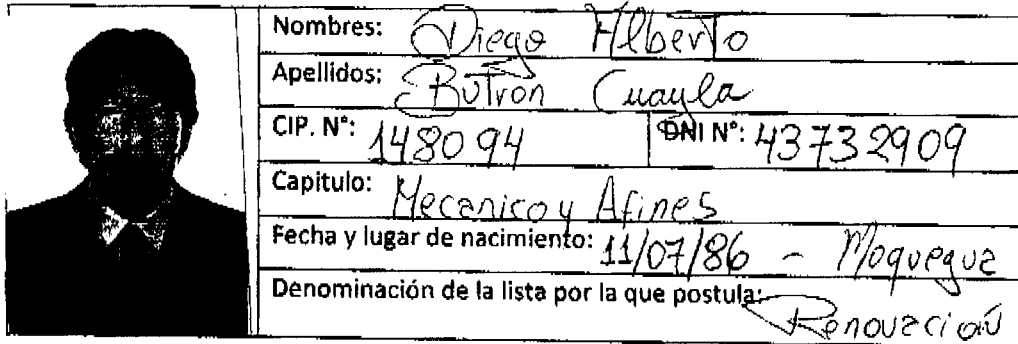 Nombres: Diego Alberto
Apellidos: Butron Cuayla
CIP. N°: 148094 DNI N°: 43732909
Capitulo: Mecanico y Afines
Fecha y lugar de nacimiento: 11/07/86 - Moquegua
Denominación de la lista por la que postula: Renovación